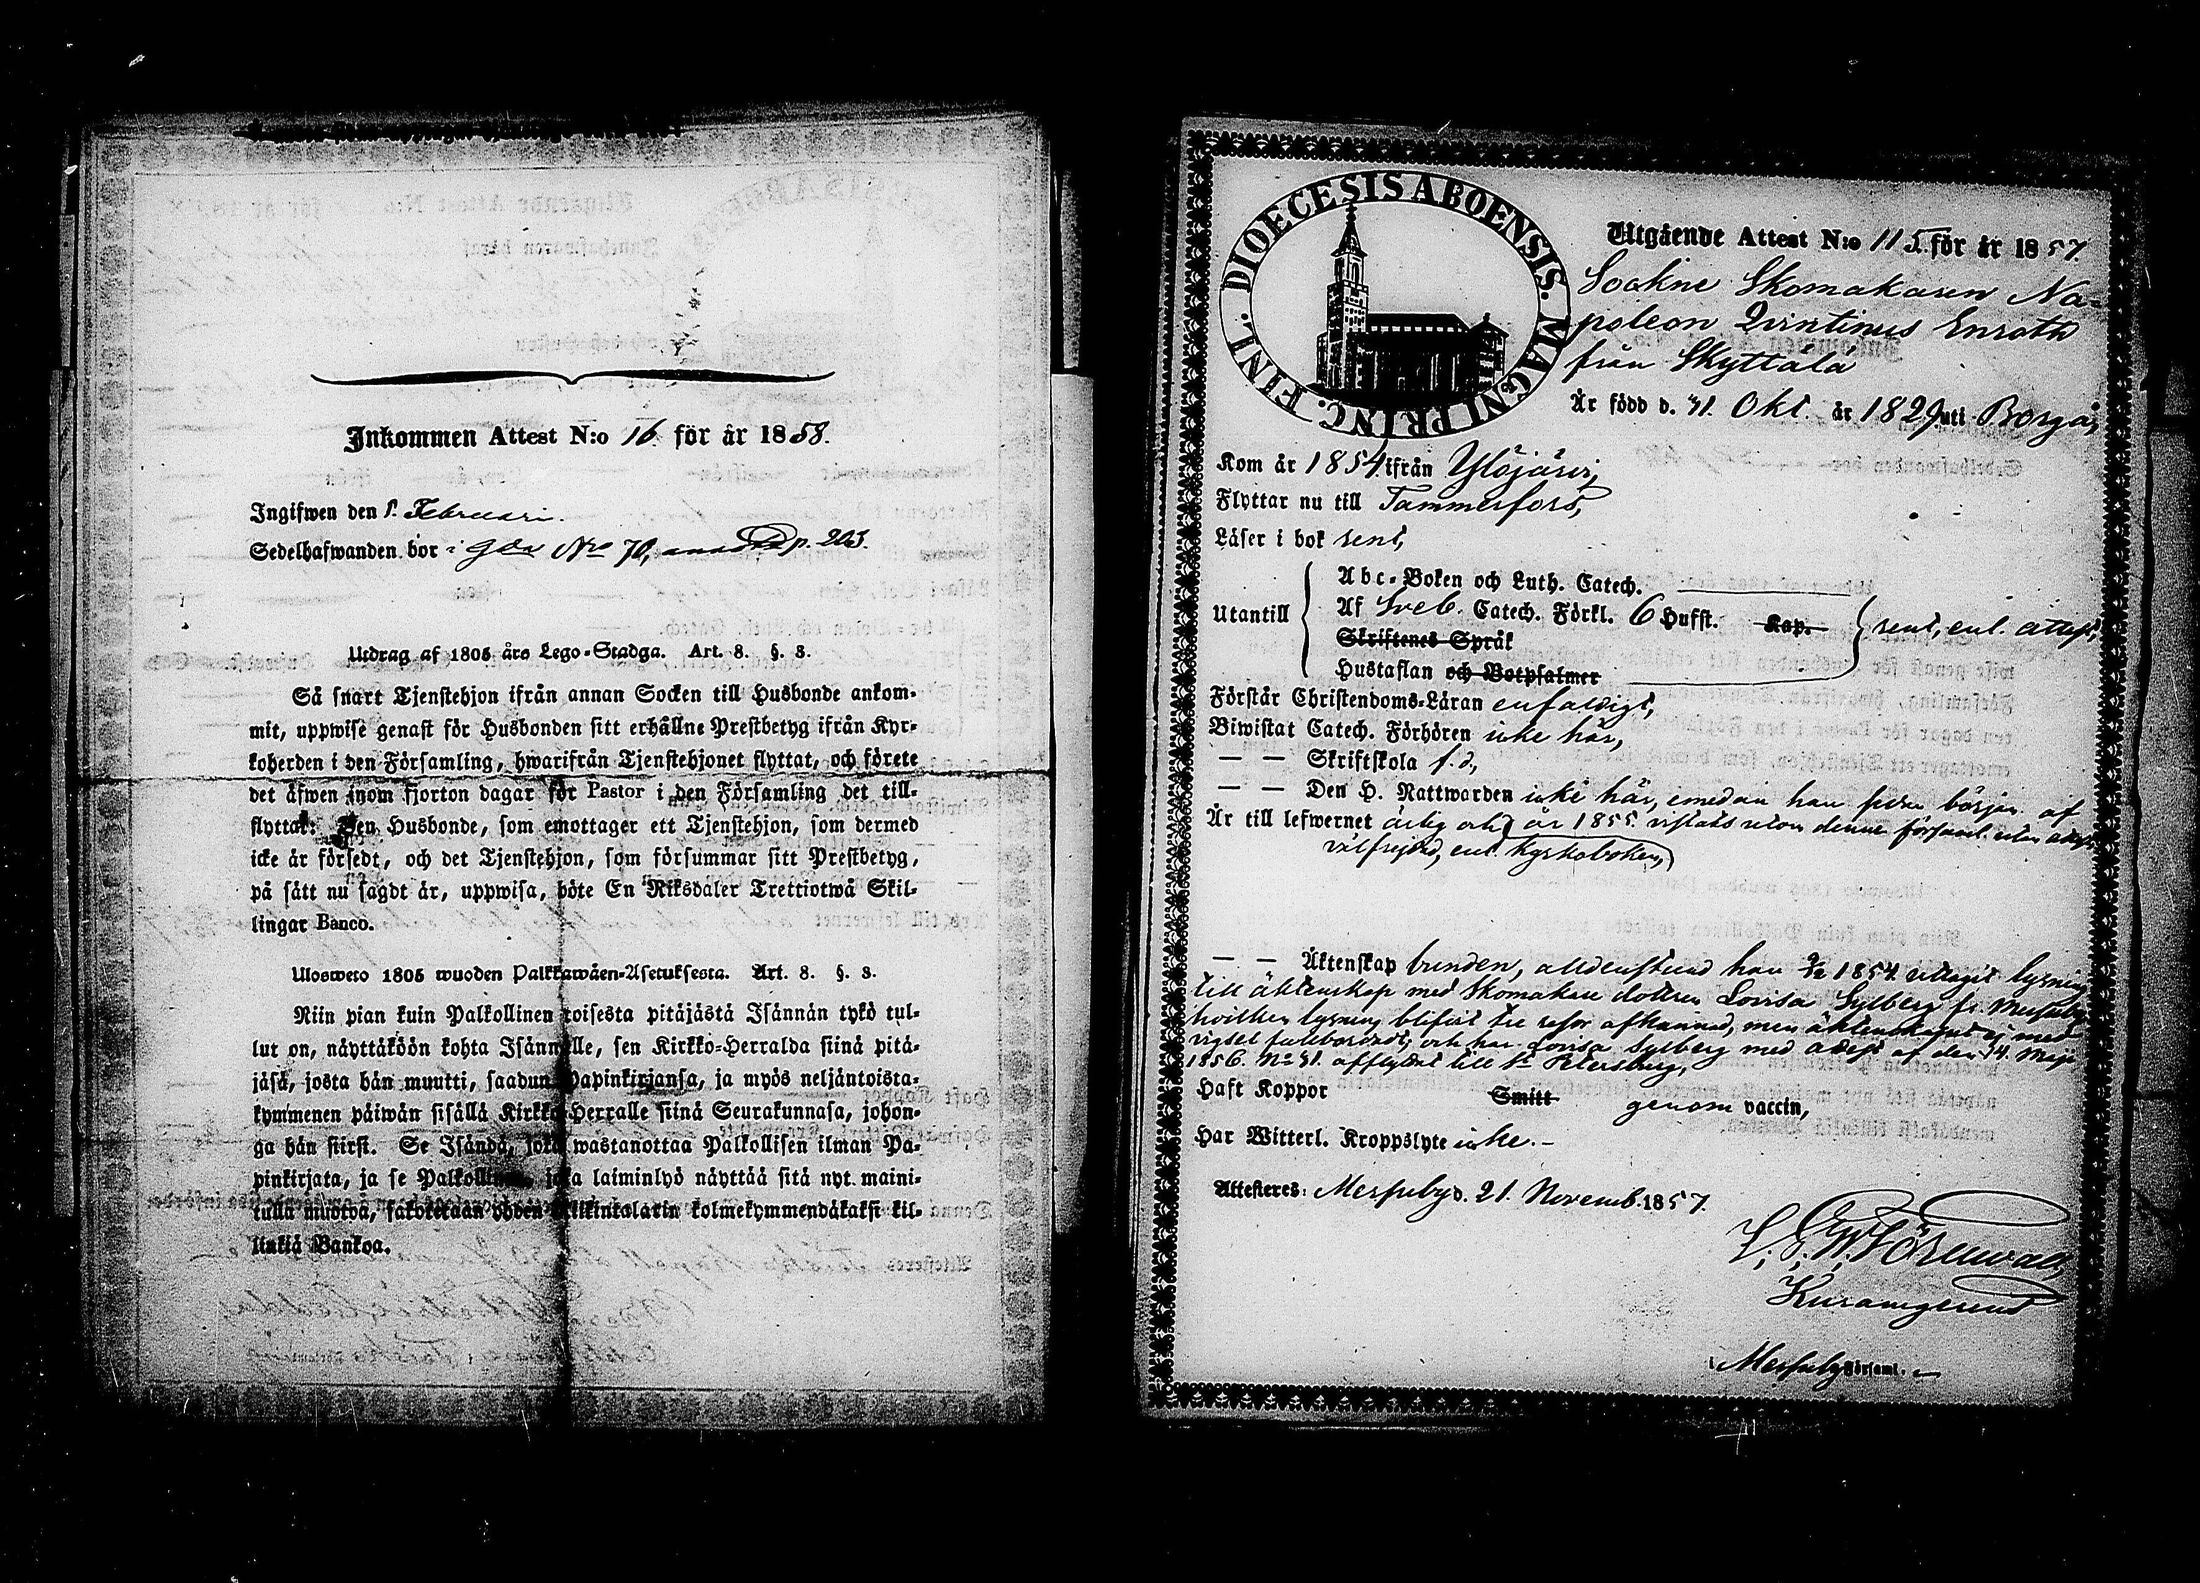 Inkommen Attest N:o 16 för år 1858.
Ingifwen den 1. Februari.
Sedelhafwanden bor i går No 70, p. 203.
Utdrag af 1805 års Lego-Stadga. Art. 8. §. 3.
Så snart Tjenstehjon ifrån annan Socken till Husbonde ankom-
mit, uppwise genast för Husbonden sitt erhållne Prestbetyg ifrån Kyr-
koherden i den Församling, hwarifrån Tjenstehjonet flyttat, och förete
det äfwen inom fjorton dagar för Pastor i den Församling det till-
flyttat: Den Husbonde, som emottager ett Tjenstehjon, som dermed
icke är försedt, och det Tjenstehjon, som försummar sitt Prestbetyg,
på sätt nu sagdt är, uppwisa, böte En Riksdaler Trettiotwå Skil-
lingar Banco.
Ulosweto 1805 wuoden Palkkawäen-Asetuksesta. Art. 8. §. 3.
Niin pian kuin Palkollinen toisesta pitäjästä Isännän tykö tul-
lut on, näyttäköön kohta Isännälle, sen Kirkko-Herralda siinä pitä-
jäsä, josta hän muutti, saadun Papinkirjansa, ja myös neljäntoista-
kymmenen päiwän sisällä Kirkko-Herralle siinä Seurakunnasa, johon-
ga hän siirsi. Se Isändä, joka wastanottaa Palkollisen ilman Pa-
pinkirjata, ja se Palkollinen, joka laiminlyö näyttää sitä nyt maini-
tulla muotoa, sakoketaan yhden Riikintalarin kolmekymmendäkaksi kil-
linkiä Bankoa.
DIOECESIS ABOENSIS. MAGNI PRINC. FINL.
Utgående Attest N:o 115. för år 1857.
Sockne Skomakaren Na-
poleon Qvintinus Enroth
från Skyttälä
Är född d. 31. Okt. år 1829 uti Borgå,
Kom år 1854 ifrån Ylöjärvi,
Flyttar nu till Tammerfors,
Läser i bok rent,
Utantill
Abc-Boken och Luth. Catech.
Af Sveb. Catech. Förkl. 6 Hufst. Kap.
Skriftenes Språk
Hustaflan och Botpsalmer
rent, enl. attest,
Förstår Christendoms-Läran enfaldigt,
Biwistat Catech. Förhören icke här,
— — Skriftskola f. d,
— — Den H. Nattwarden icke här, emedan han sedan början af
Är till lefwernet ärlig och år 1855 vistats utom denna församl. utan attest,
välfrejdad, enl. Kyrkoboken,
— — Äktenskap bunden, alldenstund han 1854 uttagit lysning
till äktenskap med Skomakare dottren Lovisa Sylberg fr. Messuby
hvilken lysning blifvit tre resor afkunnad, men äktenskapet ej med
vigsel fullbordadt, och har Lovisa Sylberg med attest af den 14. Maji
1856. No 31. afflyttat till St Petersburg,
Haft Koppor Smitt genom vaccin,
Har Witterl. Kroppslyte icke.-
Attesteres: Messuby d. 21. Novemb. 1857.
i Messuby Församl.